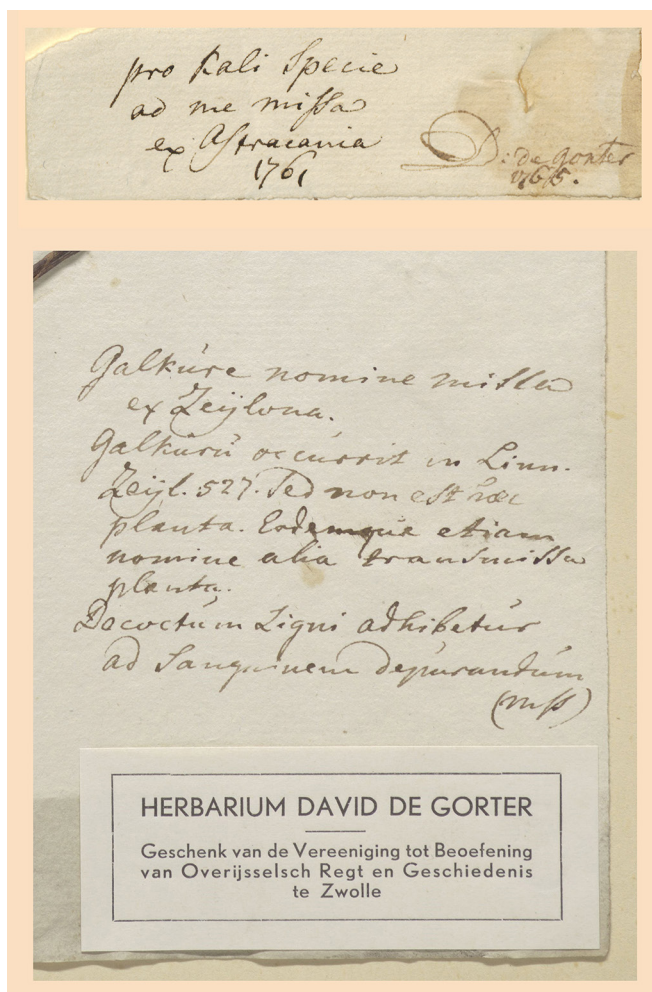 pro Kali Specie
ad me missa
ex Astracania
1761
D: de Gorter
1765.
Galkúre nomine missa
ex Zeijlona.
Galkúrú occúrrit in Linn.
Zeijl. 527. Sed non est hæc
planta. Eodemque etiam
nomine alia transmissa
planta.
Decoctúm Ligni adhibetúr
ad Sanguinem depurandúm
(mss)
HERBARIUM DAVID DE GORTER
Geschenk van de Vereeniging tot Beoefening
van Overijsselsch Regt en Geschiedenis
te Zwolle